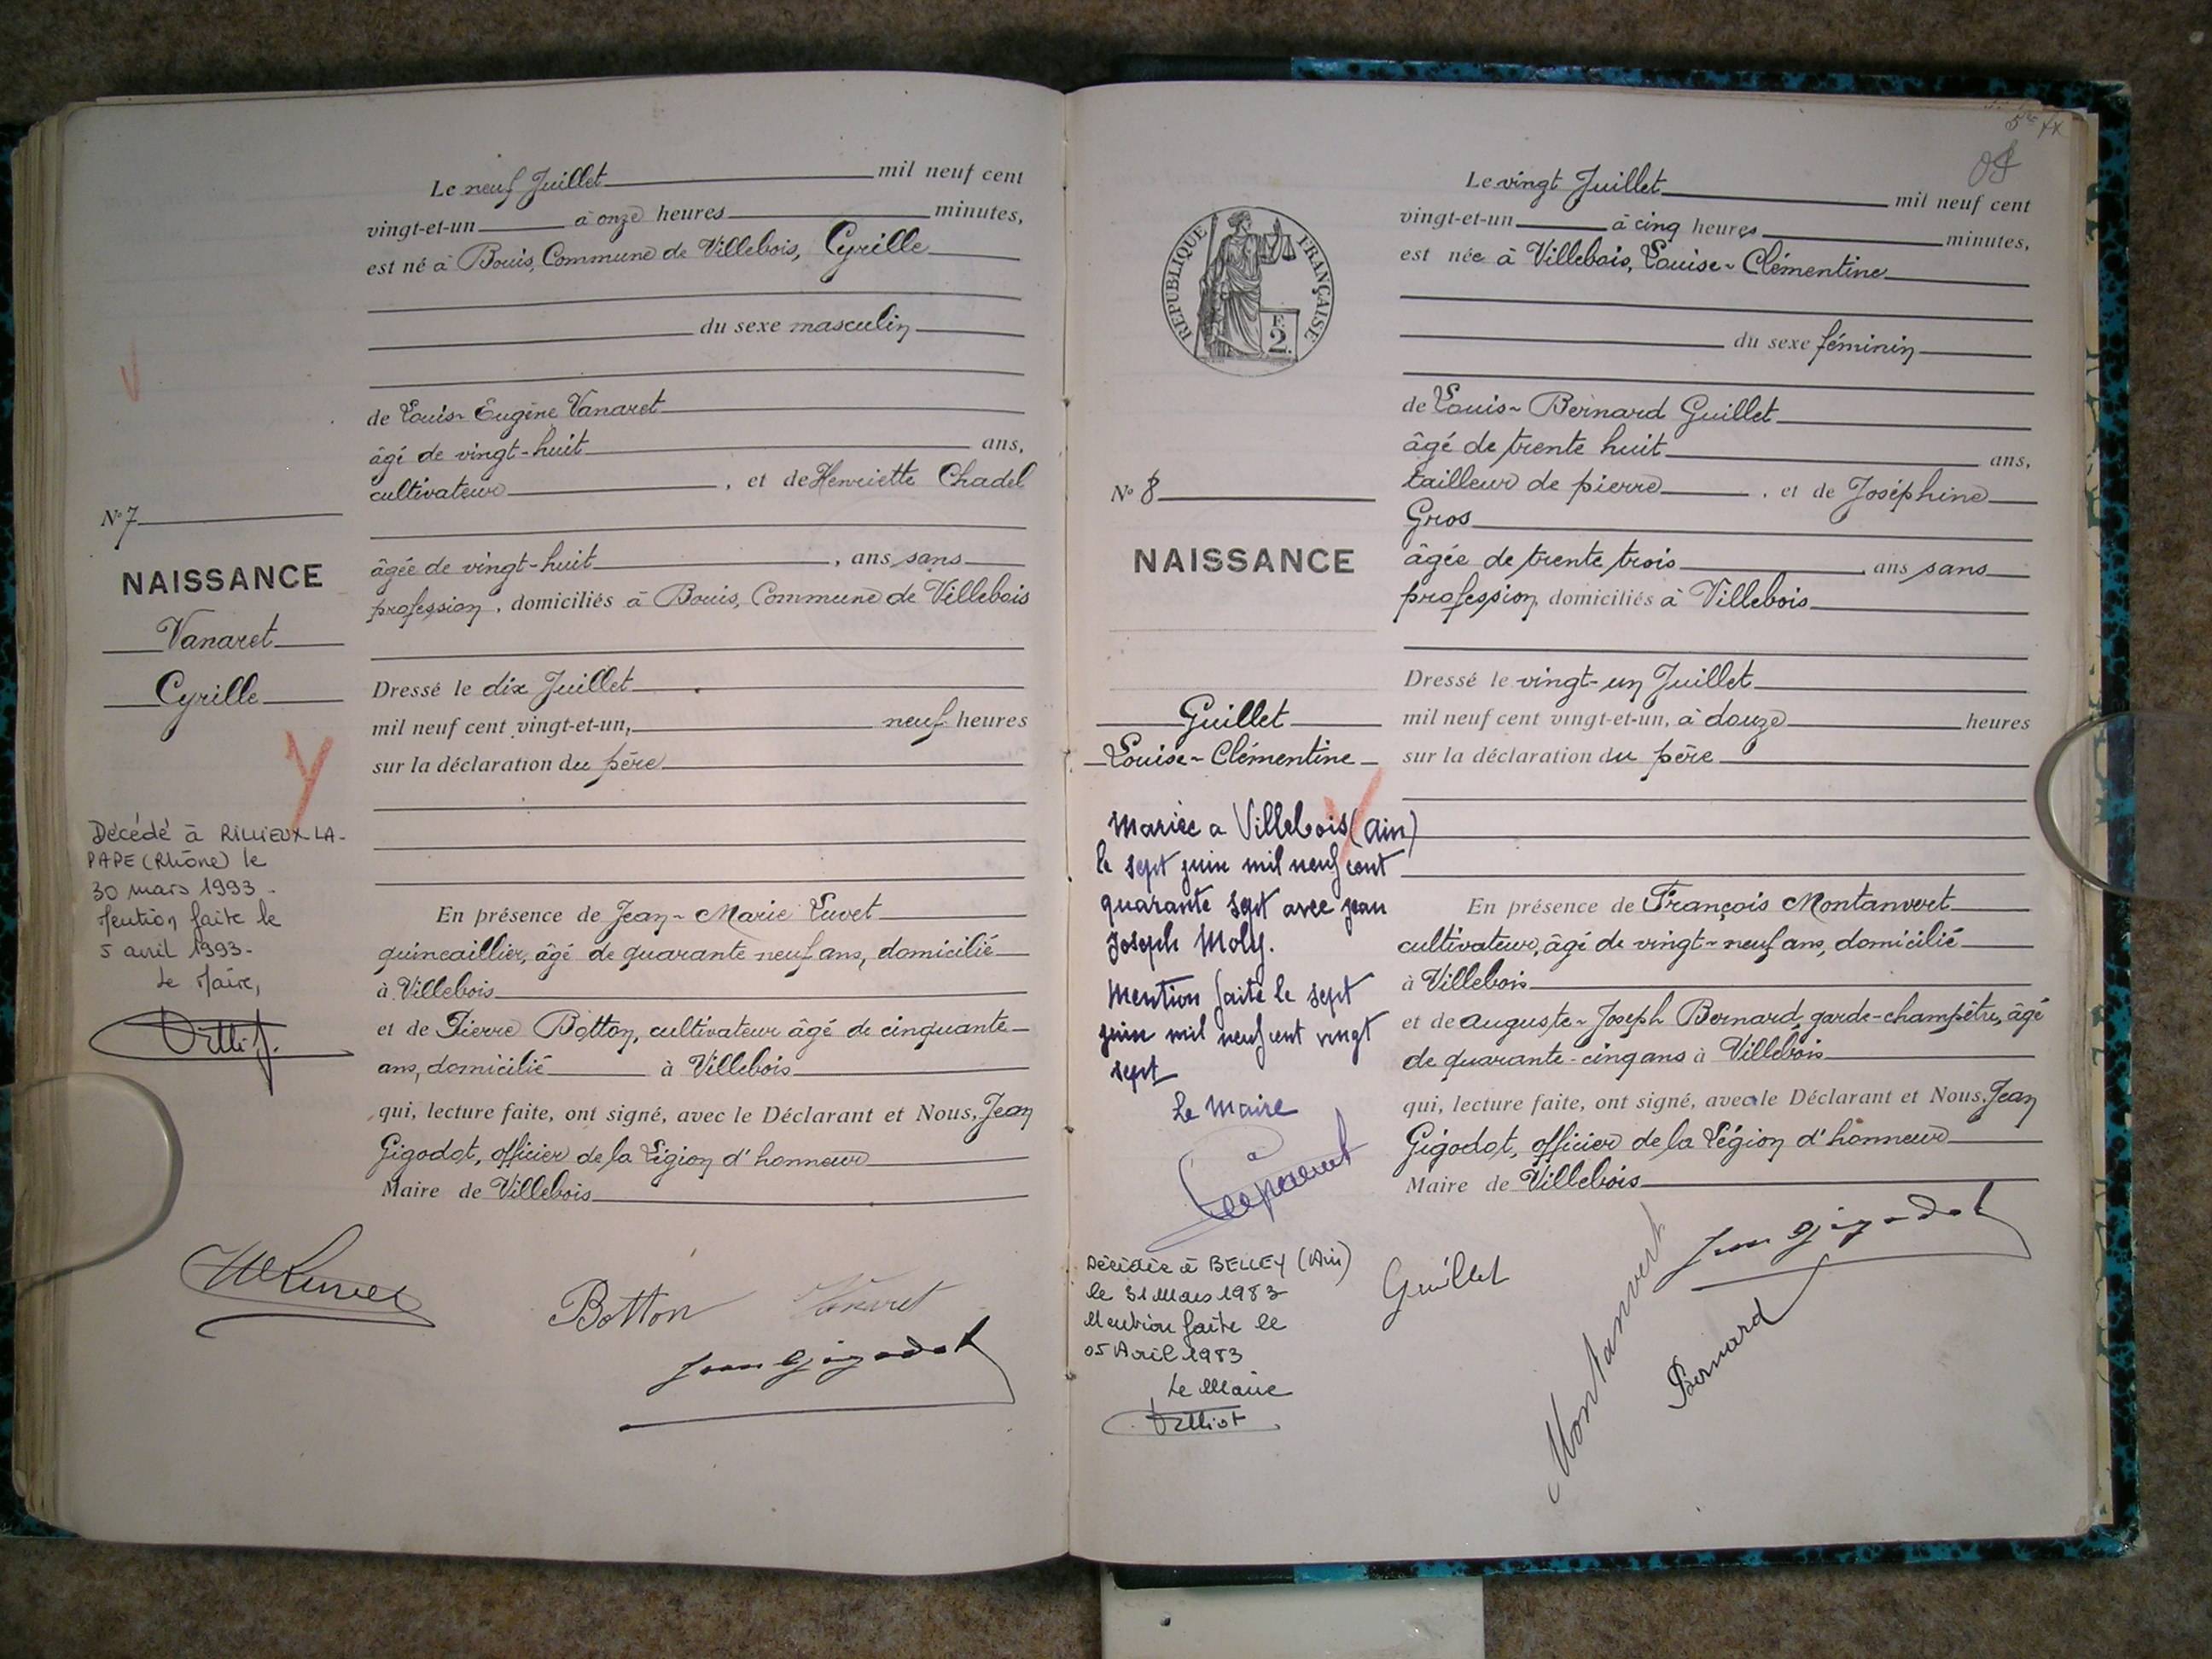 Le neuf Juillet mil neuf cent
vingt-et-un à onze heures minutes,
est né à Bouis, Commune de Villebois, Cyrille
du sexe masculin
de Louis-Eugène Vanaret
âgé de vingt-huit ans,
cultivateur, et de Henriette Chadel
âgée de vingt-huit, ans sans
profession, domiciliés à Bouis, Commune de Villebois
Dressé le dix Juillet
mil neuf cent vingt-et-un, neuf heures
sur la déclaration du père
En présence de Jean-Marie Luvet
quincaillier, âgé de quarante neuf ans, domicilié
à Villebois
et de Pierre Botton, cultivateur âgé de cinquante
ans, domicilié à Villebois
qui, lecture faite, ont signé, avec le Déclarant et Nous, Jean
Gigodot, officier de la Légion d'honneur
Maire de Villebois
N° 7
NAISSANCE
Vanaret
Cyrille
Décédé à RILLIEUX-LA-
PAPE (Rhône) le
30 mars 1993.
Mention faite le
5 avril 1993.
Le Maire,
Botton Vanaret
Jean Gigodot
Le vingt Juillet mil neuf cent
vingt-et-un à cinq heures minutes,
est née à Villebois, Louise-Clémentine
du sexe féminin
de Louis-Bernard Guillet
âgé de trente huit ans,
tailleur de pierre, et de Joséphine
Gros
âgée de trente trois ans sans
profession, domiciliés à Villebois
Dressé le vingt-un Juillet
mil neuf cent vingt-et-un, à douze heures
sur la déclaration du père
En présence de François Montanvert
cultivateur, âgé de vingt-neuf ans, domicilié
à Villebois
et de Auguste-Joseph Bernard, garde-champêtre, âgé
de quarante-cinq ans à Villebois
qui, lecture faite, ont signé, avec le Déclarant et Nous, Jean
Gigodot, officier de la Légion d'honneur
Maire de Villebois
RÉPUBLIQUE FRANÇAISE
F.
2.
N° 8
NAISSANCE
Guillet
Louise-Clémentine
Mariée a Villebois (Ain)
le sept juin mil neuf cent
quarante sept avec Jean
Joseph Moly.
Mention faite le sept
juin mil neuf cent vingt
sept
Le Maire
Décédée à BELLEY (Ain)
le 31 Mars 1983
Mention faite le
05 Avril 1983
Le Maire
Guillet
Montanvert
Bernard
Jean Gigodot